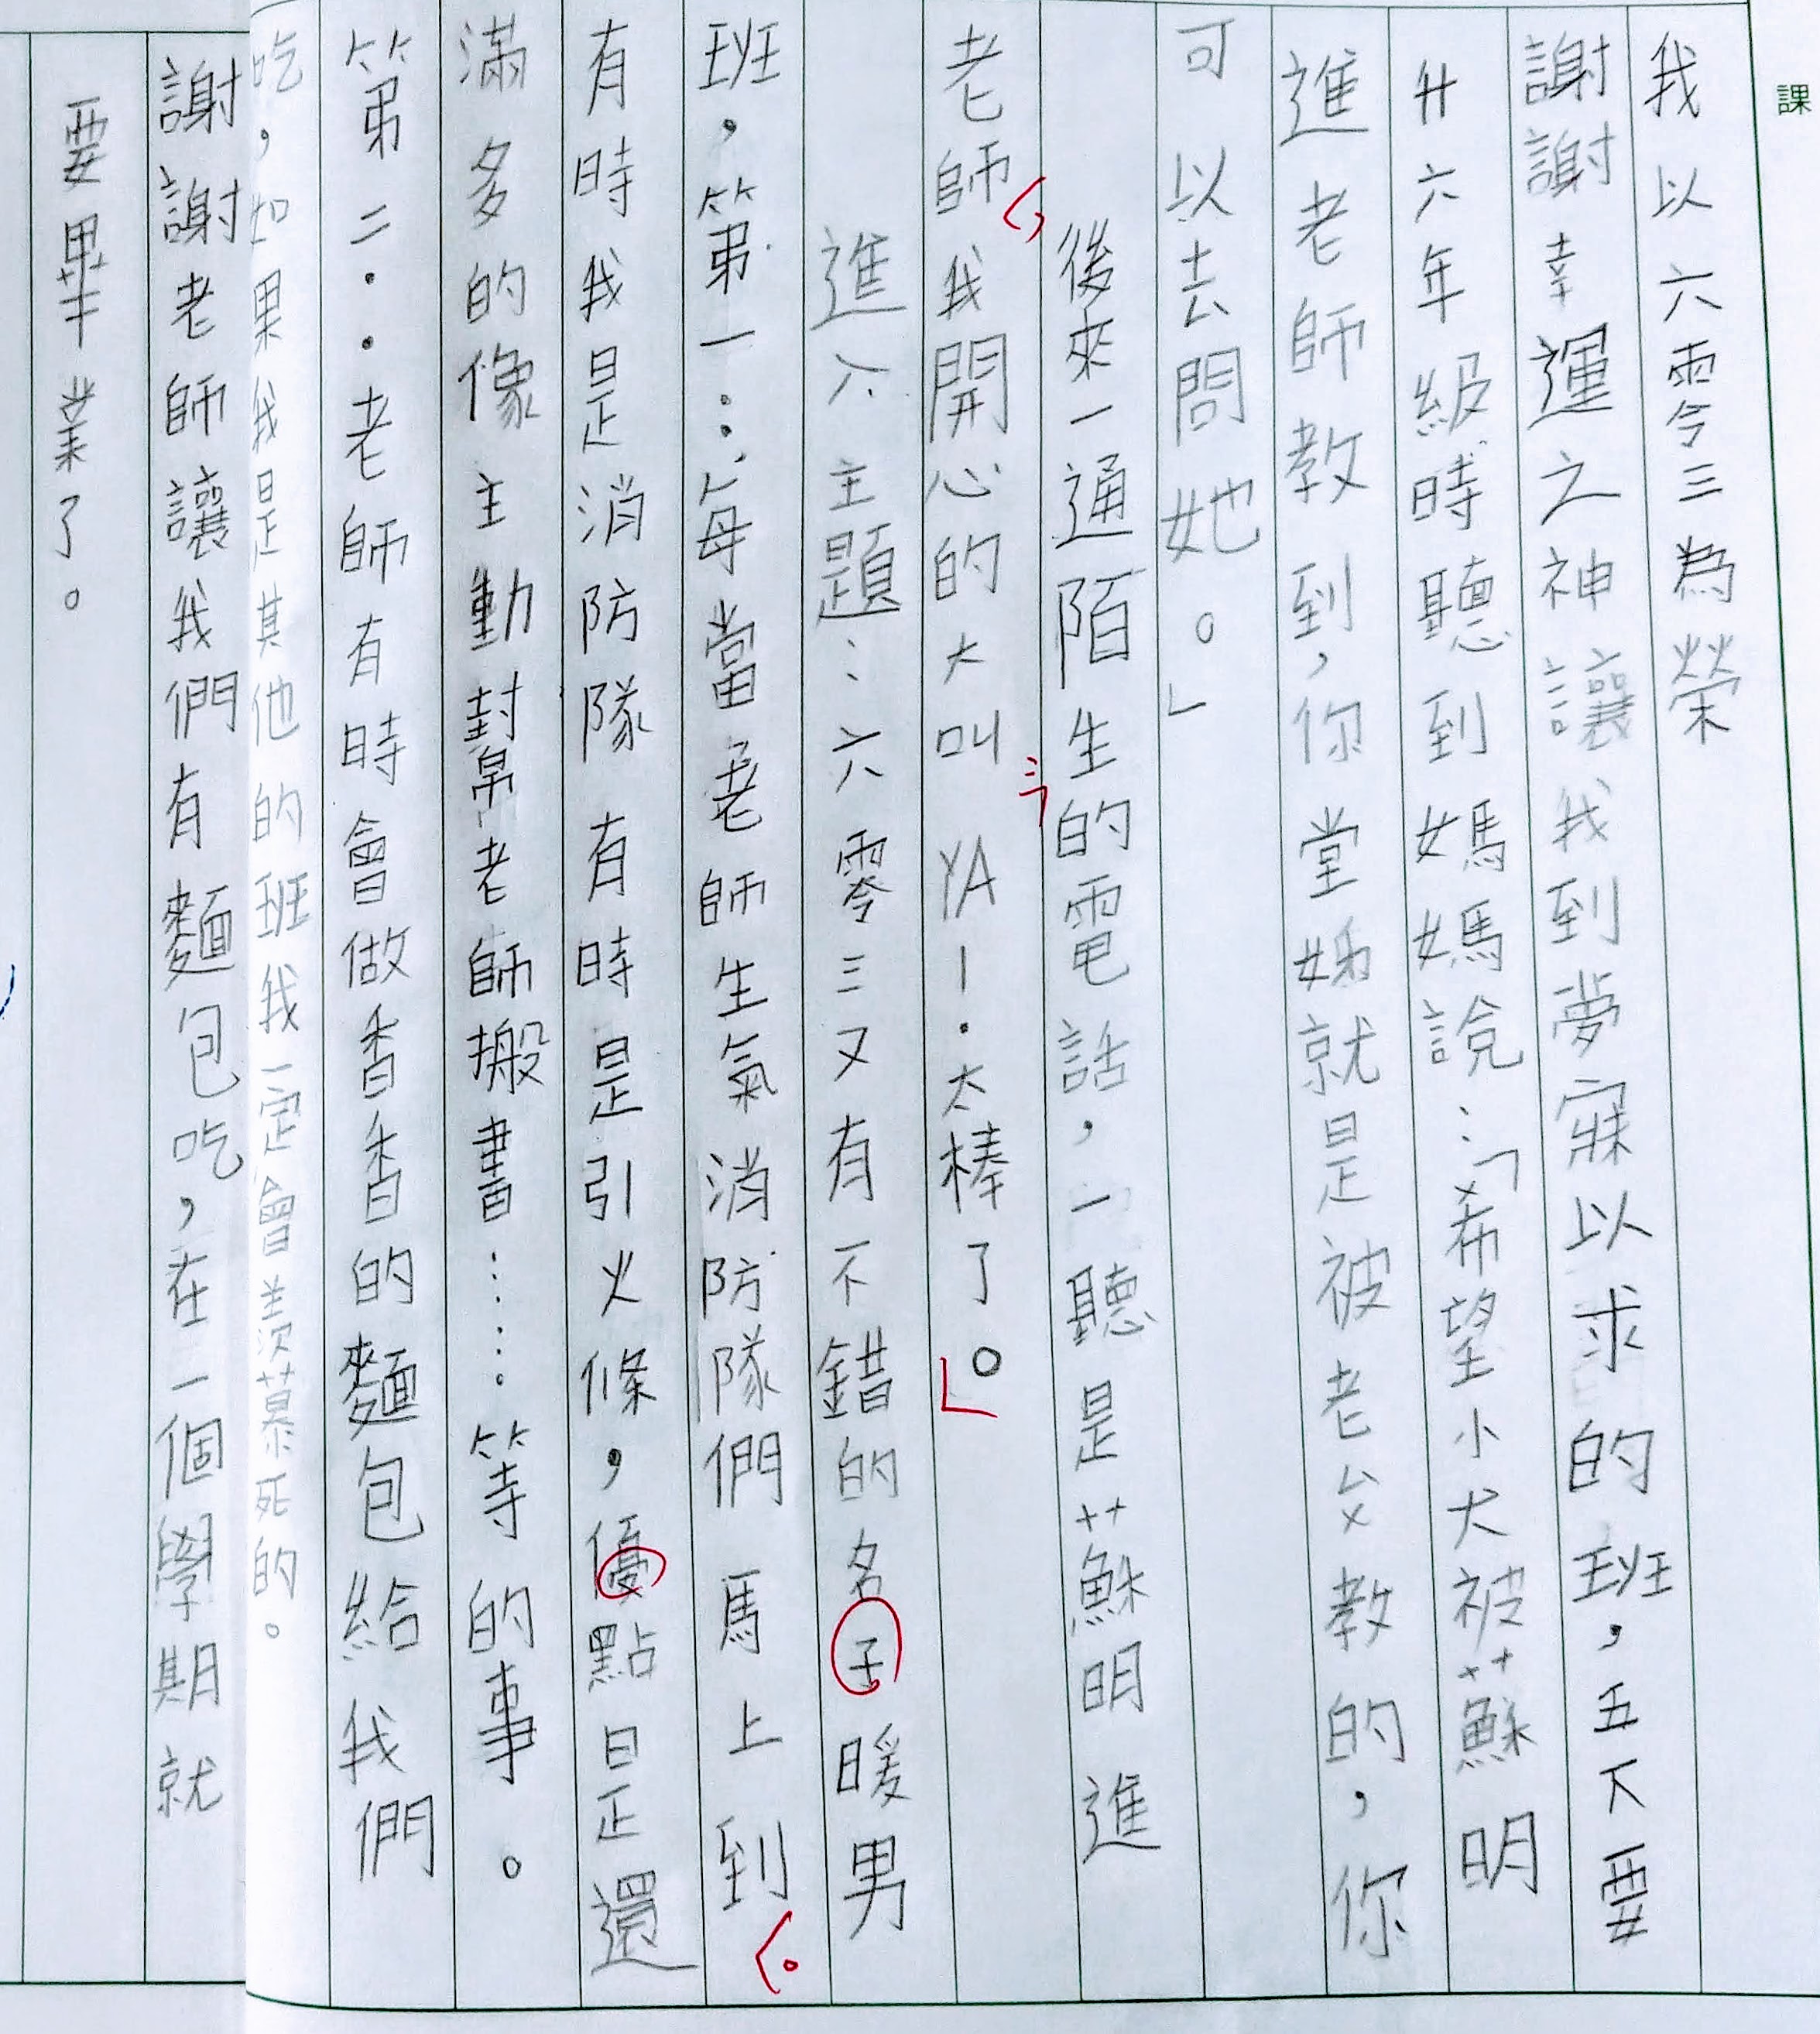 課
我以六零三為榮
謝謝幸運之神讓我到夢寐以求的班，五下要
升六年級時聽到媽媽說：「希望小犬被蘇明
進老師教到，你堂姊就是被老ㄠ教的，你
可以去問她。」
後來一通陌生的電話，一聽是蘇明進
老師，我開心的大叫：「YA！太棒了。」
進入主題：六零三又有不錯的名子暖男
班，第一：每當老師生氣消防隊們馬上到。
有時我是消防隊有時是引火條，優點是還
滿多的像主動封幫老師搬書……等的事。
第二：老師有時會做香香的麵包給我們
吃，如果我是其他的班我一定會羨慕死的。
謝謝老師讓我們有麵包吃，在一個學期就
要畢業了。